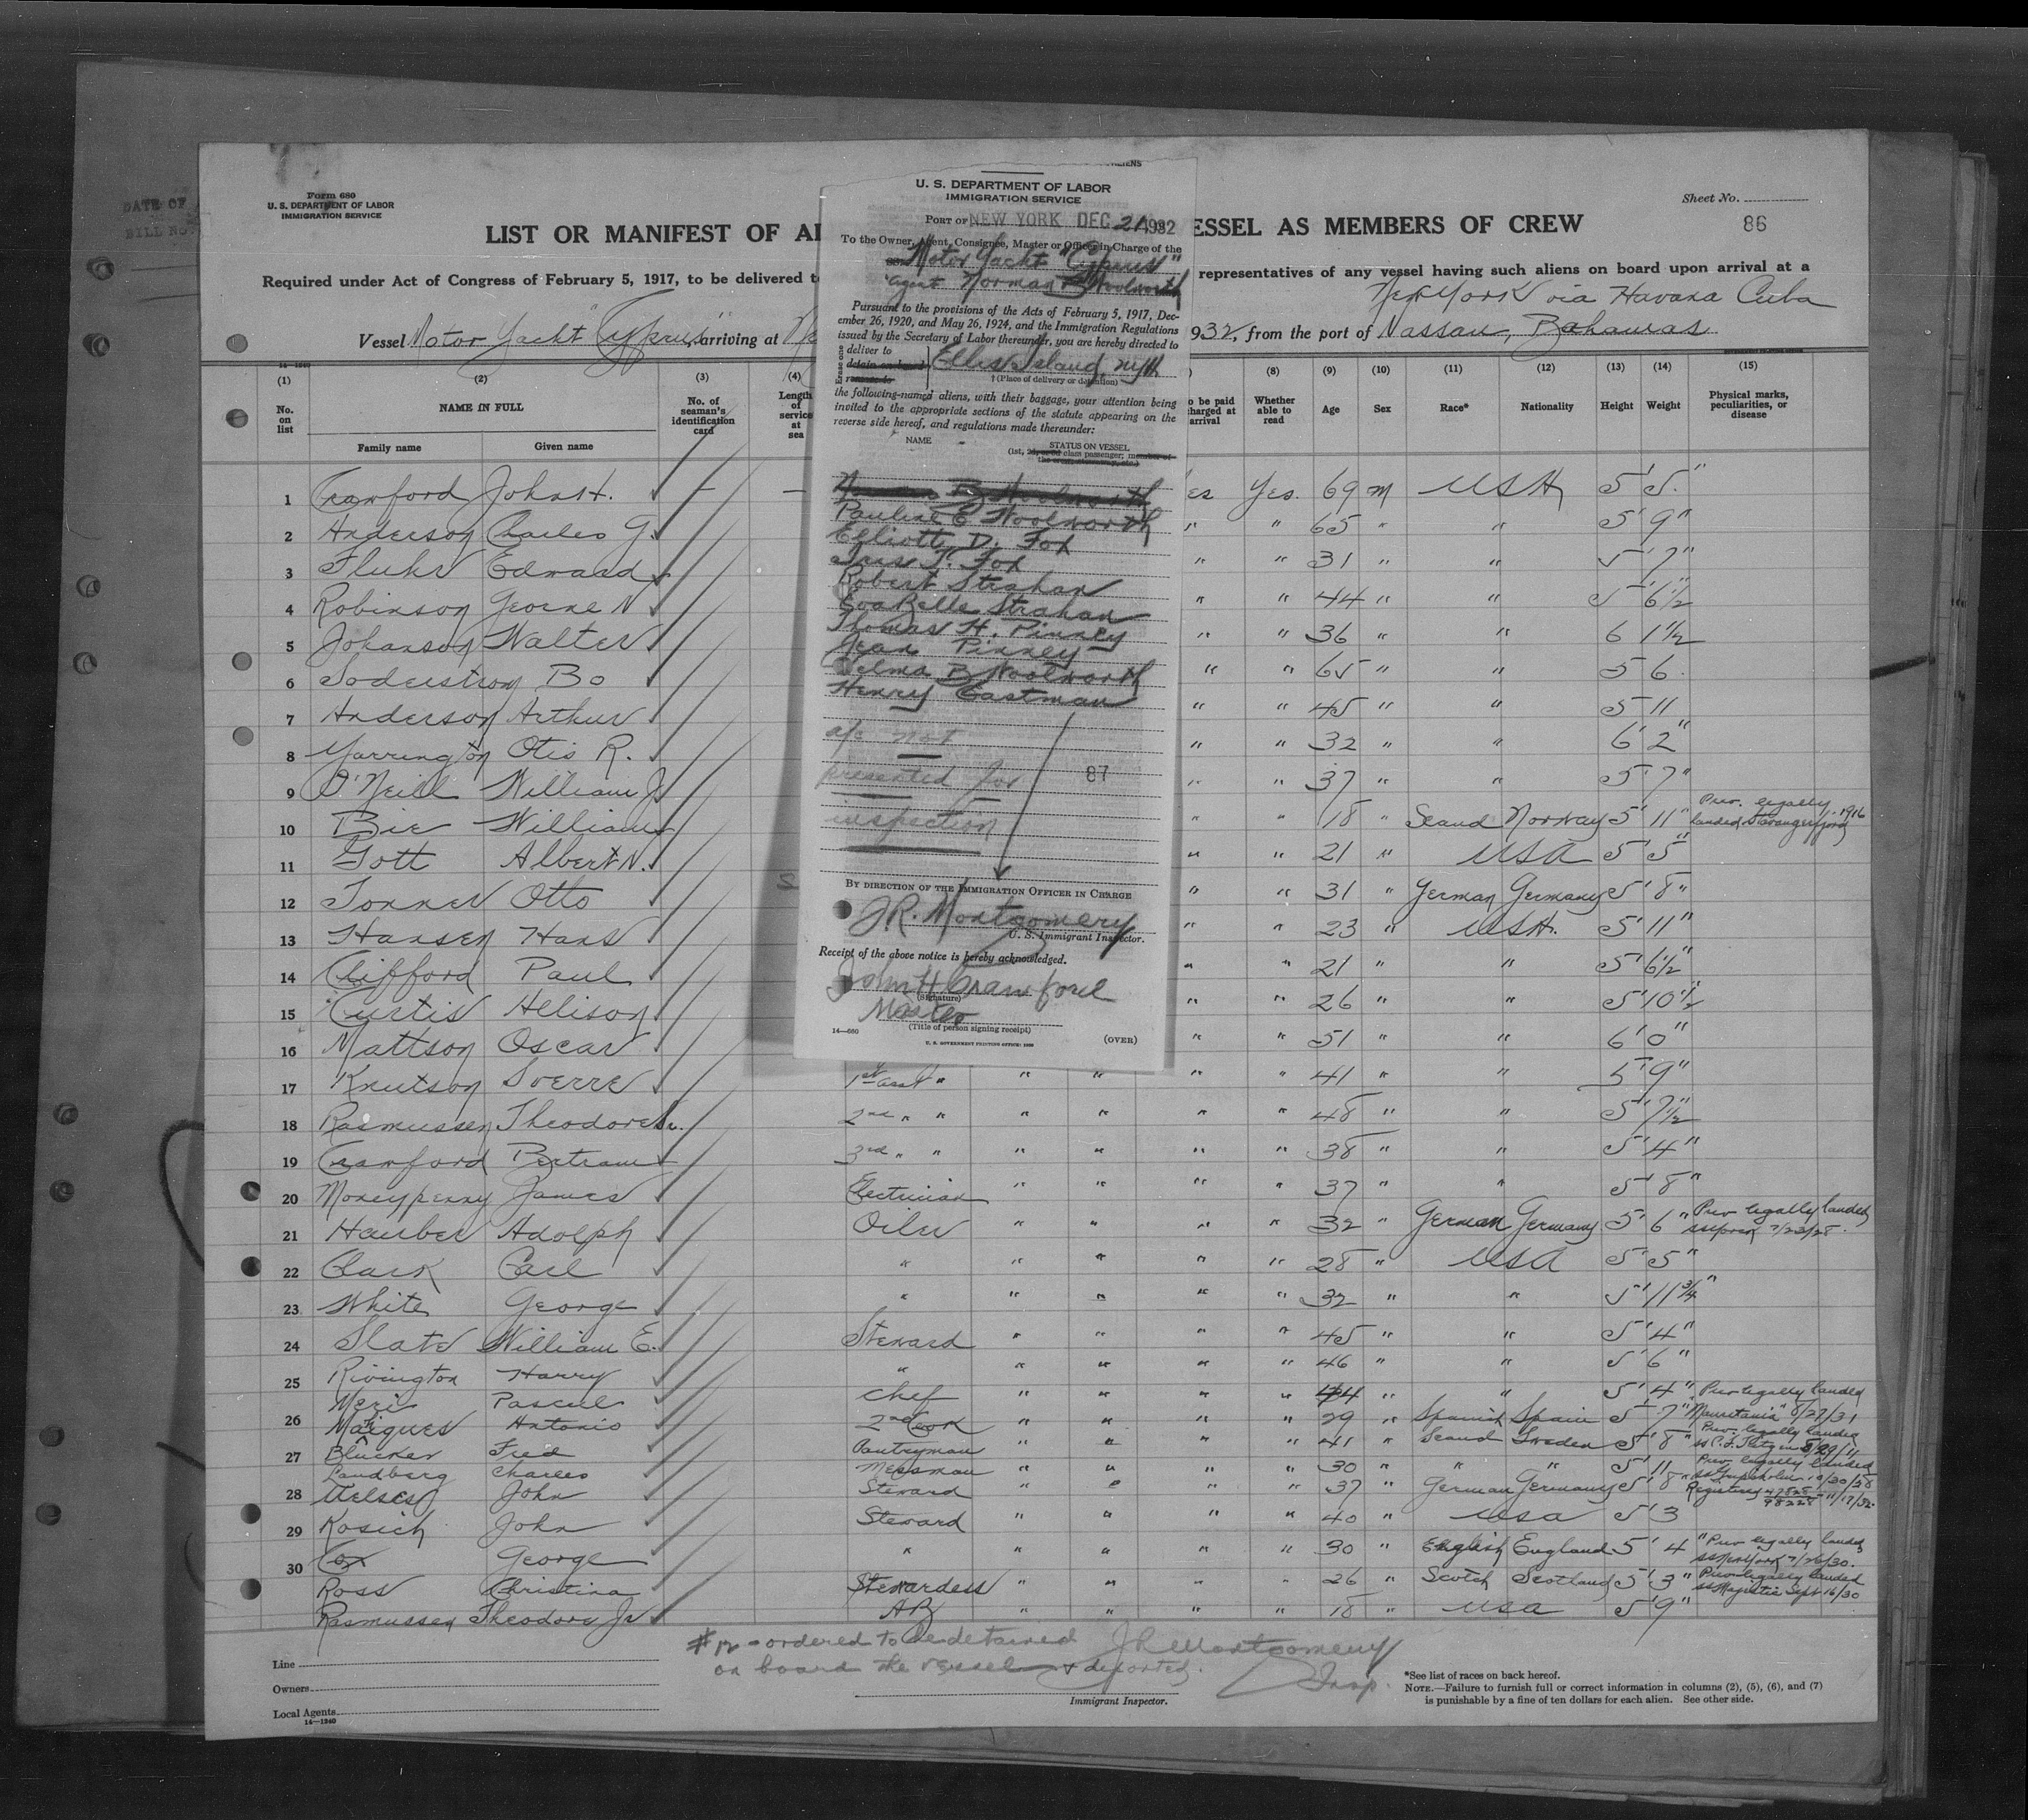 Form 680
U. S. DEPARTMENT OF LABOR
IMMIGRATION SERVICE
Sheet No.
86
LIST OR MANIFEST OF AL
ESSEL AS MEMBERS OF CREW
Required under Act of Congress of February 5, 1917, to be delivered t
representatives of any vessel having such aliens on board upon arrival at a
New York via Havana Cuba
Vessel Motor Yacht "Cyprus", arriving at
932, from the port of Nassau, Bahamas
14—1240
(1) (2) (3) (4) (8) (9) (10) (11) (12) (13) (14) (15)
No. on list NAME IN FULL No. of seaman's identification card Length of service at sea o be paid harged at arrival Whether able to read Age Sex Race* Nationality Height Weight Physical marks, peculiarities, or disease
Family name Given name
1 Crawford John H. — — es Yes. 69 m USA 5' 5"
2 Anderson Charles G. " " 65 " " 5' 9"
3 Fluhr Edward " " 31 " " 5' 7"
4 Robinson George N " " 44 " " 5' 6½"
5 Johanson Walter " " 36 " " 6 1½
6 Soderstrom Bo " " 65 " " 5 6
7 Anderson Arthur " " 45 " " 5 11
8 Yarrington Otis R. " " 32 " " 6' 2"
9 O'Neill William J " " 37 " " 5' 7"
10 Bie William " " 18 " Scand Norway 5' 11" Prev. legally landed Stavangerfjord 1916
11 Gott Albert N. " " 21 " USA 5' 5"
12 Tonner Otto " " 31 " German Germany 5' 8"
13 Hansen Hans " " 23 " USA. 5' 11"
14 Clifford Paul " " 21 " " 5' 6½"
15 Curtis Allison " " 26 " " 5' 10½
16 Mattson Oscar " " 51 " " 6' 0"
17 Knutson Sverre 1st Asst " " " " " 41 " " 5' 9"
18 Rasmussen Theodore Sr. 2nd " " " " " " 48 " " 5' 7½"
19 Crawford Bertram 3rd " " " " " " 38 " " 5' 4"
20 Moneypenny James Electrician " " " " 37 " " 5' 8"
21 Hauber Adolph Oiler " " " " 32 " German Germany 5' 6" Prev legally landed 7/23/28.
22 Clark Carl " " " " " 28 " USA 5' 5"
23 White George " " " " " 32 " " 5' 11¾"
24 Slate William E. Steward " " " " 45 " " 5' 4"
25 Rivington Harry " " " " " 46 " " 5' 6"
Meri Pascul Chef " " " " 44 " " 5' 4" Prev legally landed
26 Marques Antonio 2nd Cook " " " " 29 " Spanish Spain 5' 7" "Mauritania" 8/27/31
27 Blucker Fred Pantryman " " " " 41 " Scand Sweden 5' 8" Prev. legally landed
Landberg Charles Messman " " " " 30 " " " 5' 11 Prev legally landed
28 John Steward " " " " 37 " German Germany 5' 8" Registery 11/17/32
29 Kosich John Steward " " " " 40 " USA 5' 3
30 Cox George " " " " " 30 " English England 5' 4" Prev legally landed SS New York 7/26/30.
Ross Christina Stewardess " " " " 26 " Scotch Scotland 5' 3" Prev legally landed SS Majestic Sept 16/30
Rasmussen Theodore Jr AB " " " " 18 " USA 5' 9"
#12 - ordered to be detained
on board the vessel & deported.
J R Montgomery
Insp.
Immigrant Inspector.
Line
Owners
Local Agents
14—1240
*See list of races on back hereof.
NOTE.—Failure to furnish full or correct information in columns (2), (5), (6), and (7)
is punishable by a fine of ten dollars for each alien. See other side.
U. S. DEPARTMENT OF LABOR
IMMIGRATION SERVICE
PORT OF NEW YORK DEC 21 1932
To the Owner, Agent, Consignee, Master or Officer in Charge of the
Motor Yacht "Cyprus"
agent Norman B Woolworth
Pursuant to the provisions of the Acts of February 5, 1917, Dec-
ember 26, 1920, and May 26, 1924, and the Immigration Regulations
issued by the Secretary of Labor thereunder, you are hereby directed to
Erase one
deliver to
detain on board
remove to
Ellis Island, NYH
† (Place of delivery or detention)
the following-named aliens, with their baggage, your attention being
invited to the appropriate sections of the statute appearing on the
reverse side hereof, and regulations made thereunder:
NAME
STATUS ON VESSEL
(1st, 2d, or 3d class passenger; member of
the crew, stowaway, etc.)
Norman B Woolworth
Pauline E Woolworth
Elliott D. Fox
Iris T. Fox
Robert Strahan
Evabelle Strahan
Thomas H. Pinney
Jean Pinney
Velma B Woolworth
Henry Eastman
a/c not
presented for
87
inspection
BY DIRECTION OF THE IMMIGRATION OFFICER IN CHARGE
J.R. Montgomery
U. S. Immigrant Inspector.
Receipt of the above notice is hereby acknowledged.
John H Crawford
(Signature)
Master
(Title of person signing receipt)
14—680
U. S. GOVERNMENT PRINTING OFFICE: 1930
(OVER)
DATE OF
BILL NO.